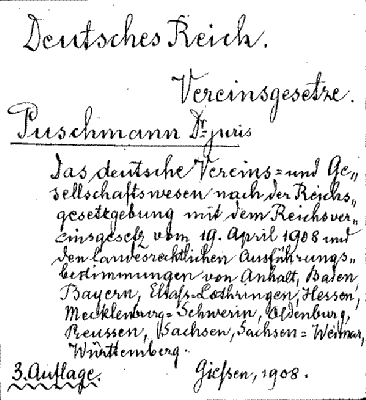 Deutsches Reich.
Vereinsgesetze.
Puschmann Dr juris
Das deutsche Vereins= und Ge„
sellschaftswesen nach der Reichs„
gesetzgebung mit dem Reichsver„
einsgesetz vom 19. April 1908 und
den landesrechtlichen Ausführungs„
bestimmungen von Anhalt, Baden
Bayern, Elsaß=Lothringen, Hessen,
Mecklenburg=Schwerin, Oldenburg,
Reussen, Sachsen, Sachsen=Weimar,
Württemberg.
3. Auflage. Gießen, 1908.